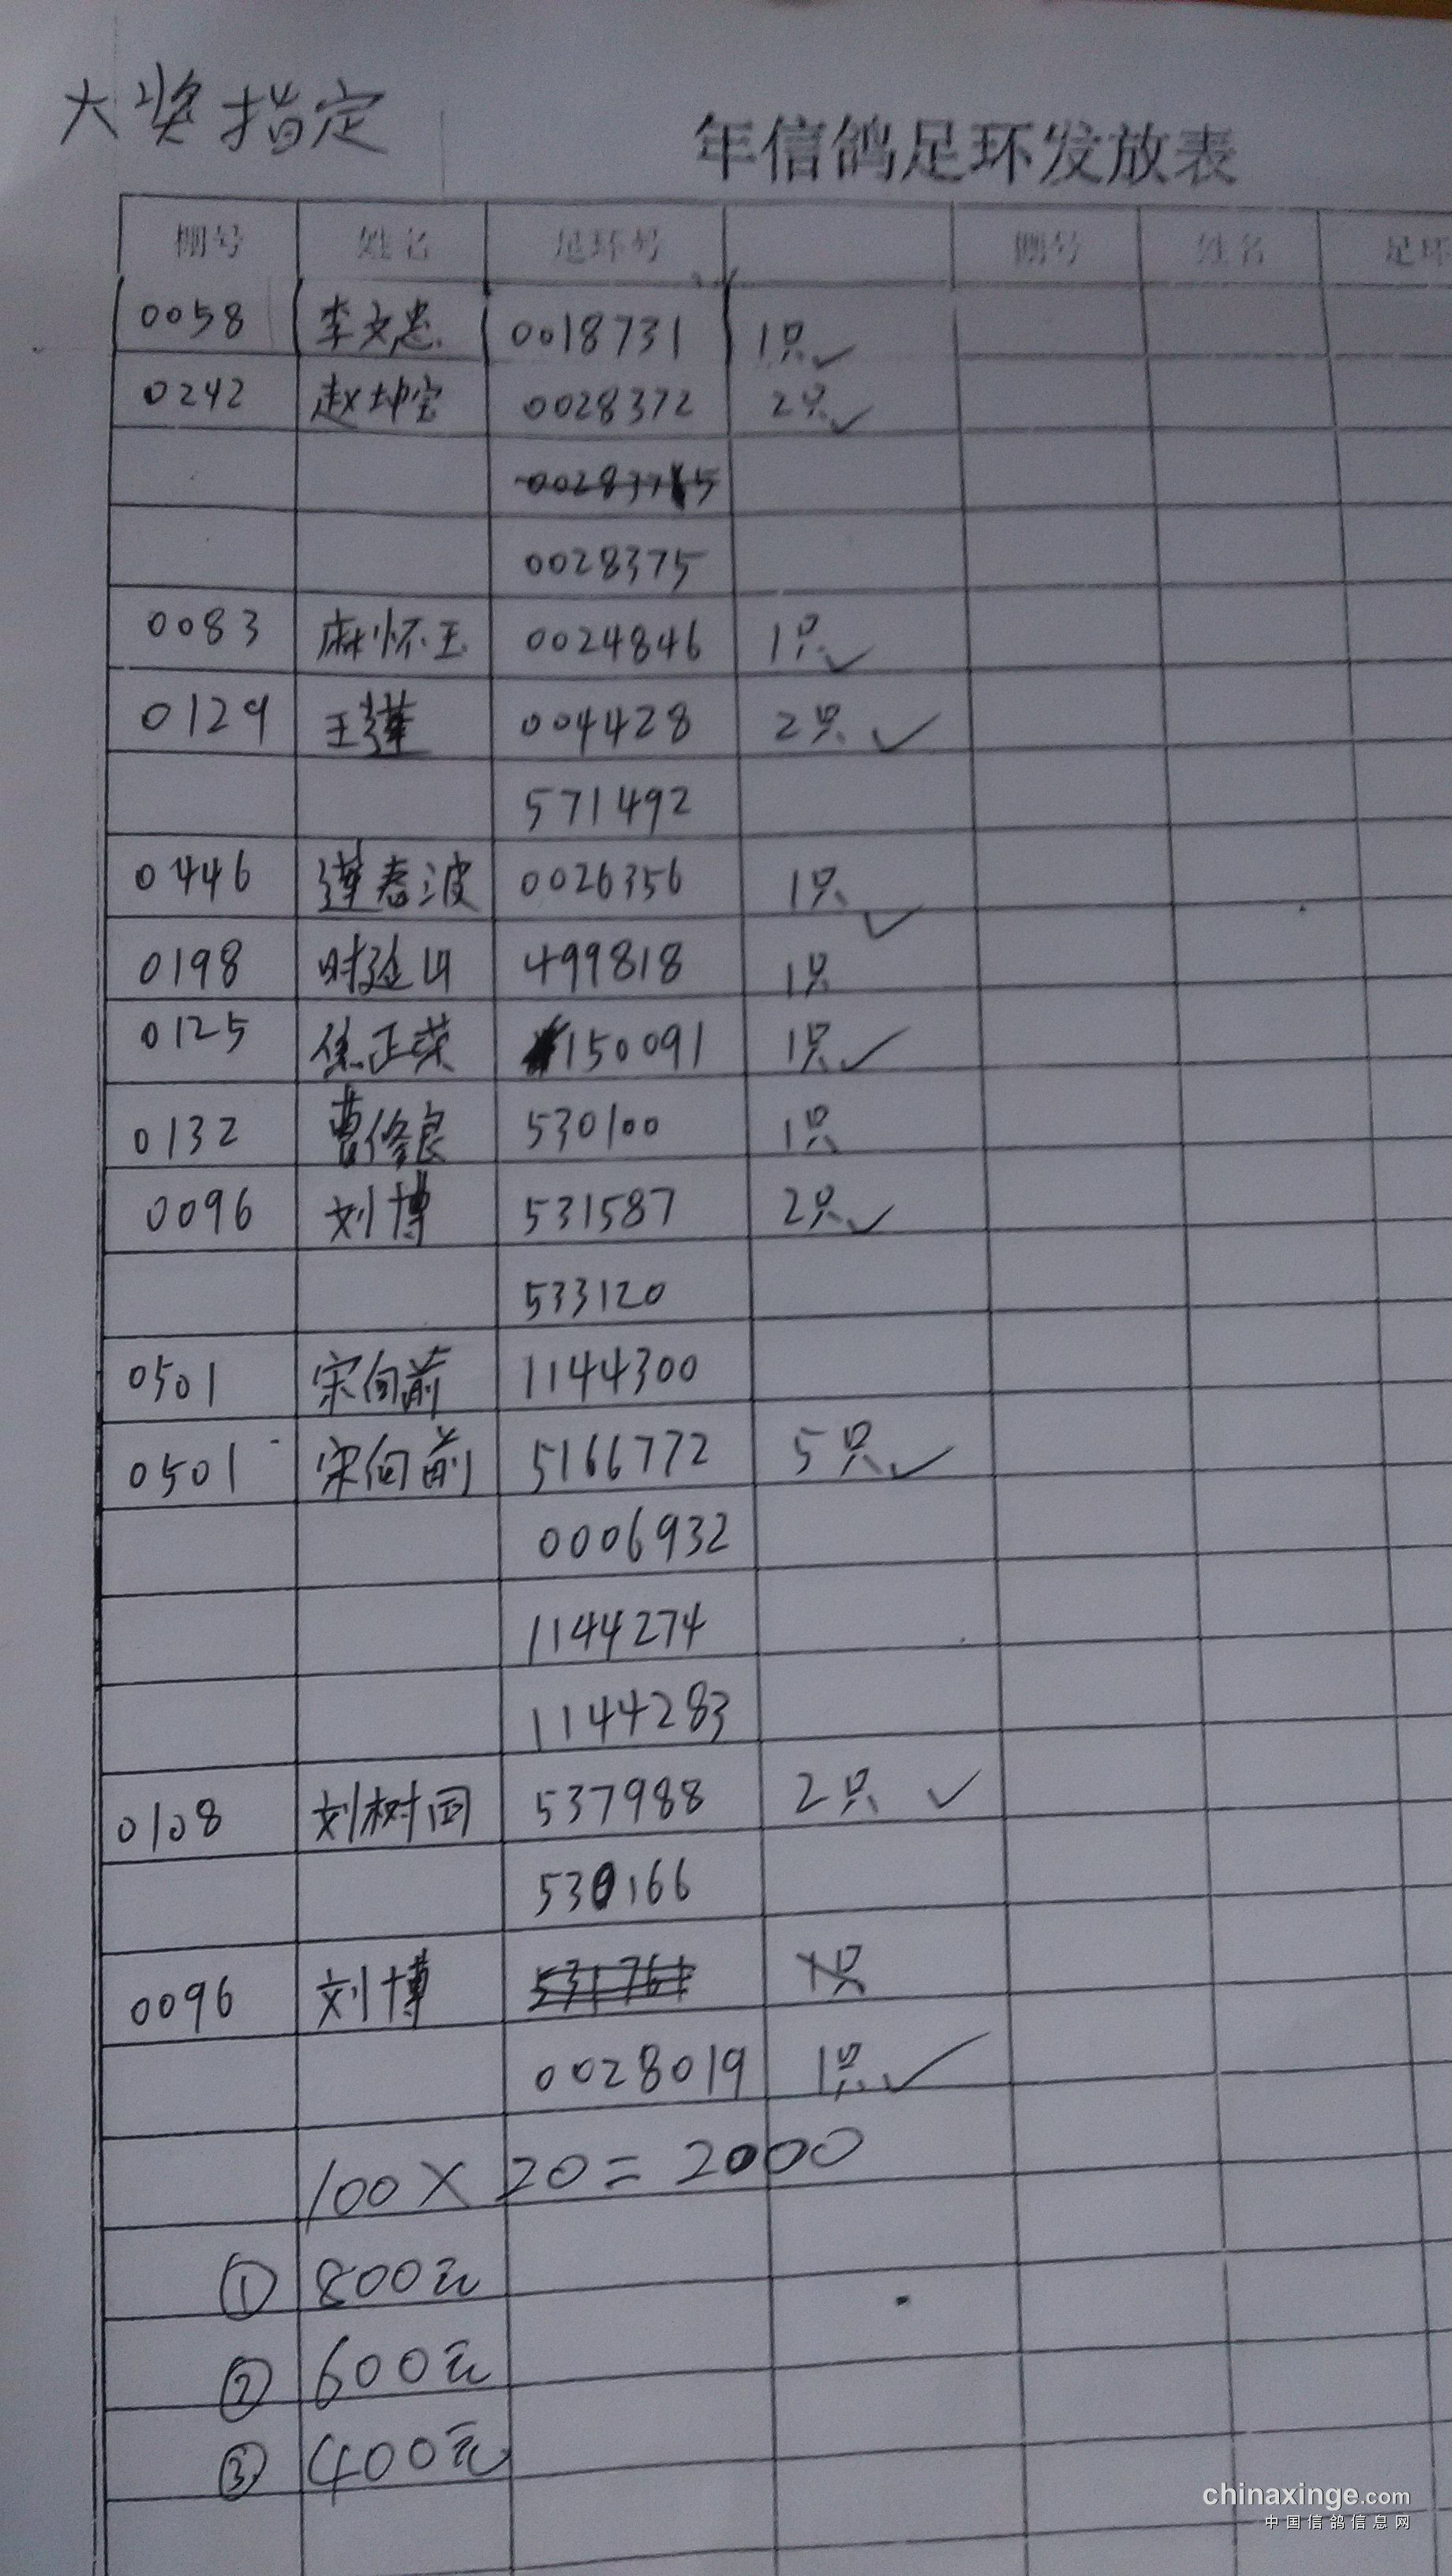 大奖指定
年信鸽足环发放表
棚号 姓名 足环号 棚号 姓名 足环
0058 李文忠 0018731 1只✓
0242 赵坤宝 0028372 2只✓
0028375
0083 麻怀玉 0024846 1只✓
0129 王 004428 2只✓
571492
0446 春波 0026356 1只✓
0198 时延山 499818 1只
0125 焦正荣 150091 1只✓
0132 曹修良 530100 1只
0096 刘博 531587 2只✓
533120
0501 宋向前 1144300
0501 宋向前 5166772 5只✓
0006932
1144274
1144283
0108 刘树田 537988 2只 ✓
530166
0096 刘博 531761 1只
0028019 1只✓
100×20=2000
① 800元
② 600元
③ 400元
chinaxinge.com
中国信鸽信息网